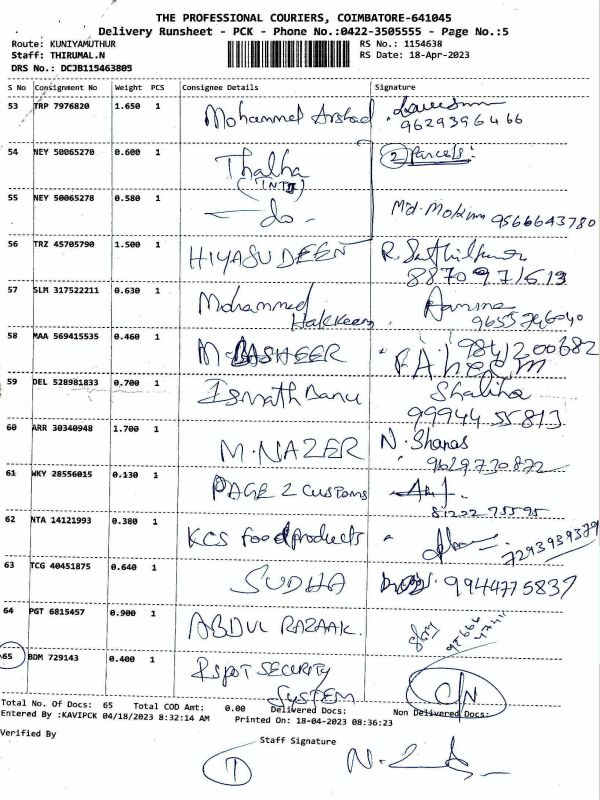 THE PROFESSIONAL COURIERS, COIMBATORE-641045
Delivery Runsheet - PCK - Phone No.:0422-3505555 - Page No.:5
Route: KUNIYAMUTHUR
RS No.: 1154638
Staff: THIRUMAL.N
RS Date: 18-Apr-2023
DRS No.: DCJB115463805
S No Consignment No Weight PCS Consignee Details Signature
53 TRP 7976820 1.650 1 Mohammed Arshad
9629396466
54 NEY 50065270 0.600 1 Thalha (2) Parcels:
55 NEY 50065278 0.580 1 - do - Md. Mokim 9566643780
56 TRZ 45705790 1.500 1 HIYASUDEEN R. Sathilkumar
57 SLM 317522211 0.630 1 Mohammed
Hakkeem
58 MAA 569415535 0.460 1 M. BASHEER 9841200682
59 DEL 528981833 0.700 1 Ismath Banu Shaliha
99944 55813
60 ARR 30340948 1.700 1 M. NAZER N. Shanas
9629730872
61 WKY 28556015 0.130 1 PAGE 2 Customs
62 NTA 14121993 0.380 1 KCS foodproducts 7293939379
63 TCG 40451875 0.640 1 SUDHA 9944775837
64 PGT 6815457 0.900 1 ABDUL RAZAAK.
65 BDM 729143 0.400 1 Rspot SECURITY
SYSTEM C/N
Total No. Of Docs: 65 Total COD Amt: 0.00 Delivered Docs: Non Delivered Docs:
Entered By :KAVIPCK 04/18/2023 8:32:14 AM Printed On: 18-04-2023 08:36:23
Verified By
Staff Signature